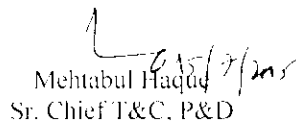 Mehtabul Haque
Sr. Chief T&C, P&D